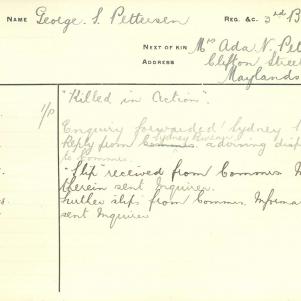 NAME George. S. Pettersen REG. &C. 3rd B
NEXT OF KIN Mrs Ada N. Pet
ADDRESS Clifton Street
Maylands
"Killed in Action".
1/P
Enquiry forwarded Sydney
Sydney Bureau
Reply from Commis. advising disp
to Commis.
"Slip" received from Commis
therein sent Inquirer.
further slips from Commis. Informa
sent Inquirer